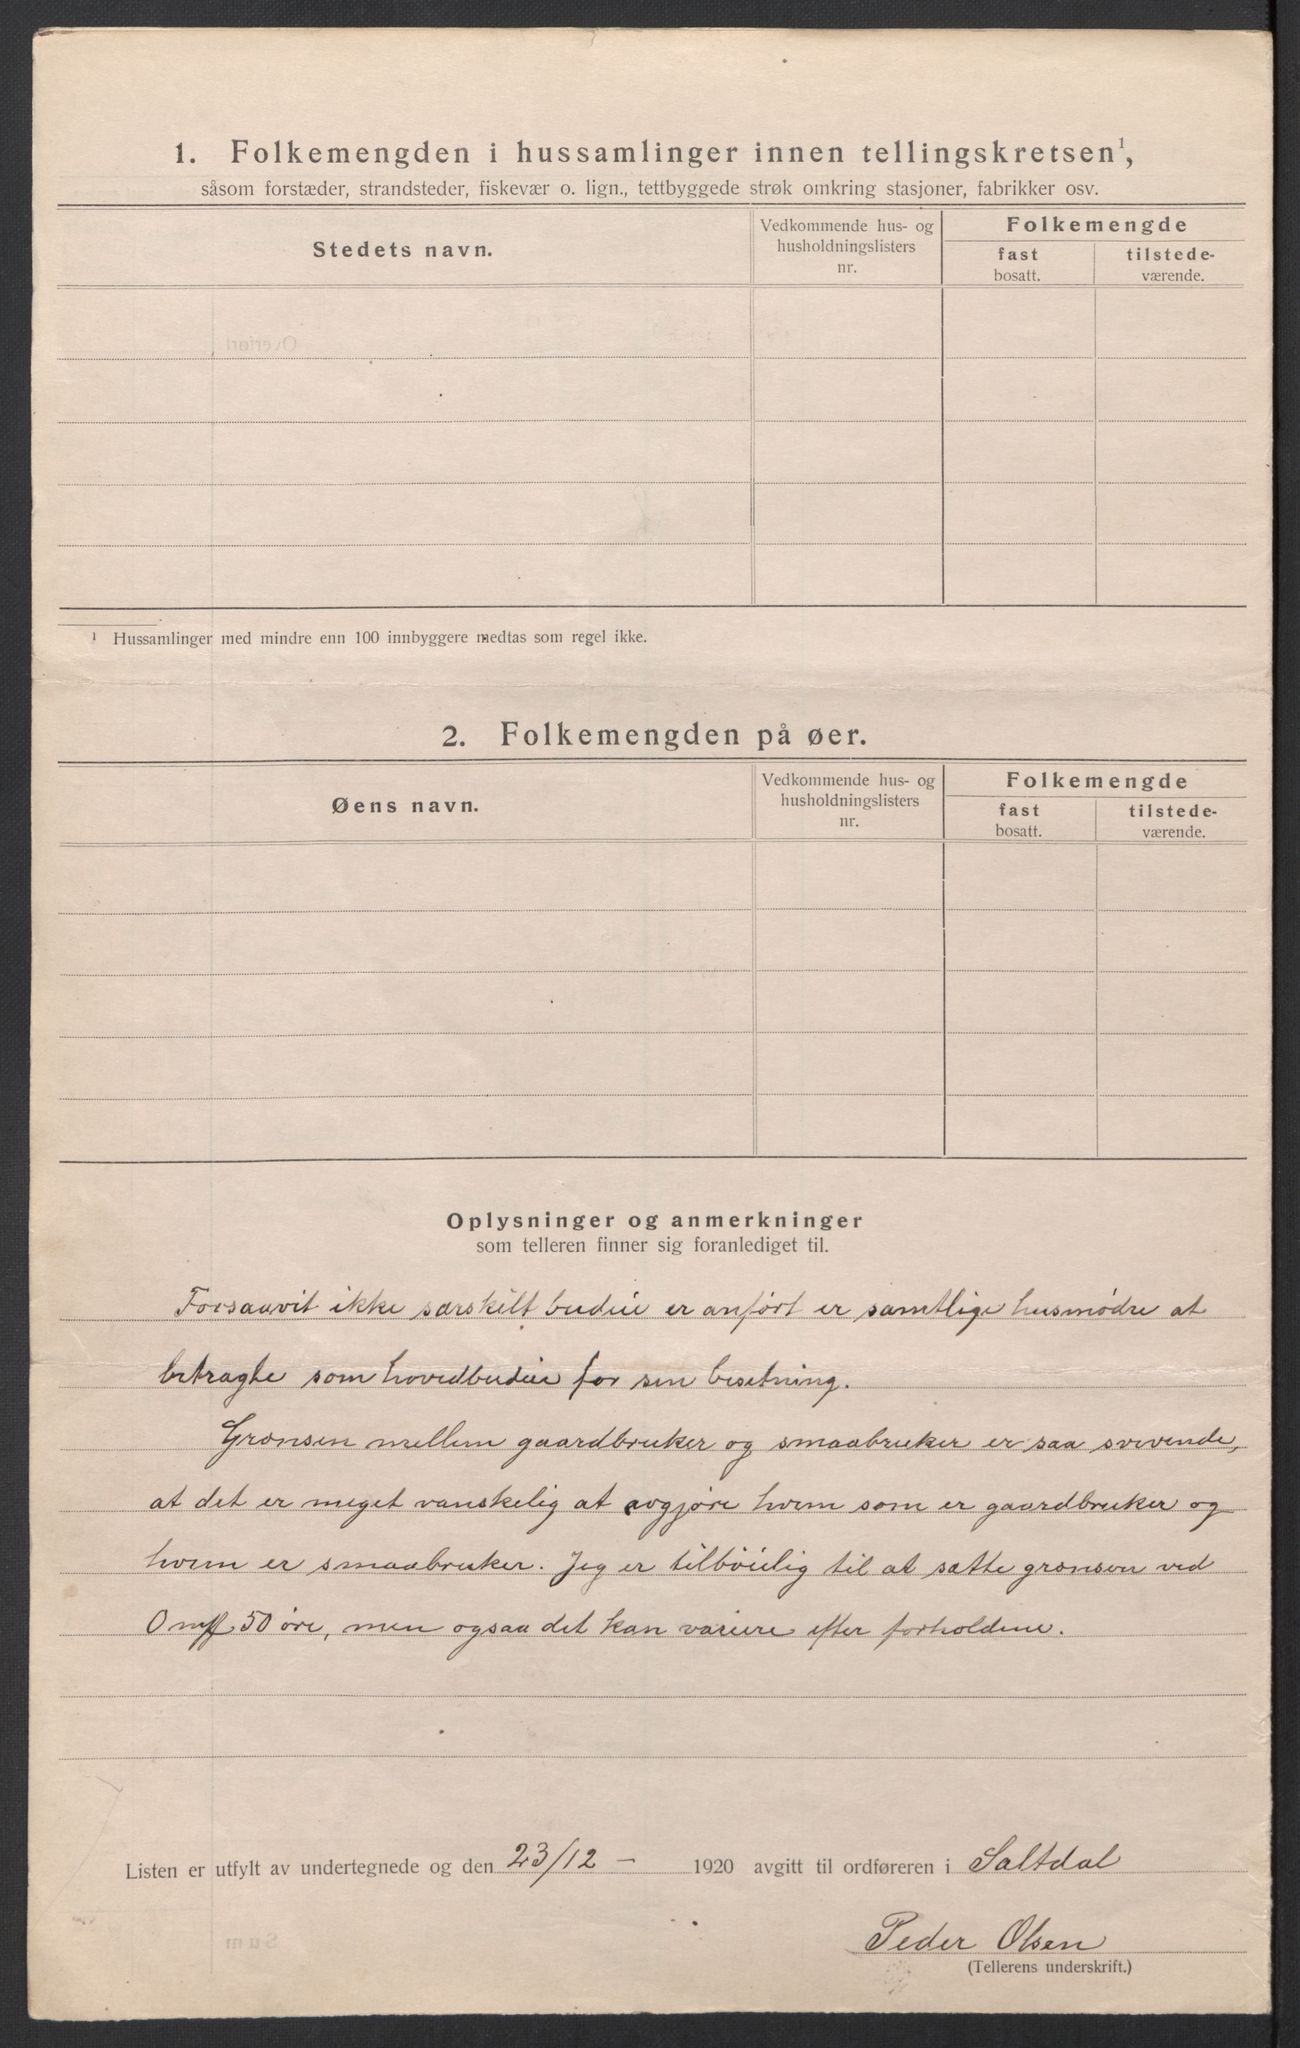 1. Folkemengden i hussamlinger innen tellingskretsen¹,
såsom forstæder, strandsteder, fiskevær o. lign., tettbyggede strøk omkring stasjoner, fabrikker osv.
Stedets navn.
Vedkommende hus- og
husholdningslisters
nr.
Folkemengde
fast
bosatt.
tilstede-
værende.
¹ Hussamlinger med mindre enn 100 innbyggere medtas som regel ikke.
2. Folkemengden på øer.
Øens navn.
Vedkommende hus- og
husholdningslisters
nr.
Folkemengde
fast
bosatt.
tilstede-
værende.
Oplysninger og anmerkninger
som telleren finner sig foranlediget til.
Forsaavit ikke særskilt budeie er anført er samtlige husmødre at
betragte som hovedbudeie for sin besetning.
Grænsen mellem gaardbruker og smaabruker er saa svevende,
at det er meget vanskelig at avgjøre hvem som er gaardbruker og
hvem er smaabruker. Jeg er tilbøielig til at sætte grænsen ved
0 50 øre, men ogsaa det kan variere efter forholdene.
Listen er utfylt av undertegnede og den 23/12 – 1920 avgitt til ordføreren i Saltdal
Peder Olsen
(Tellerens underskrift.)